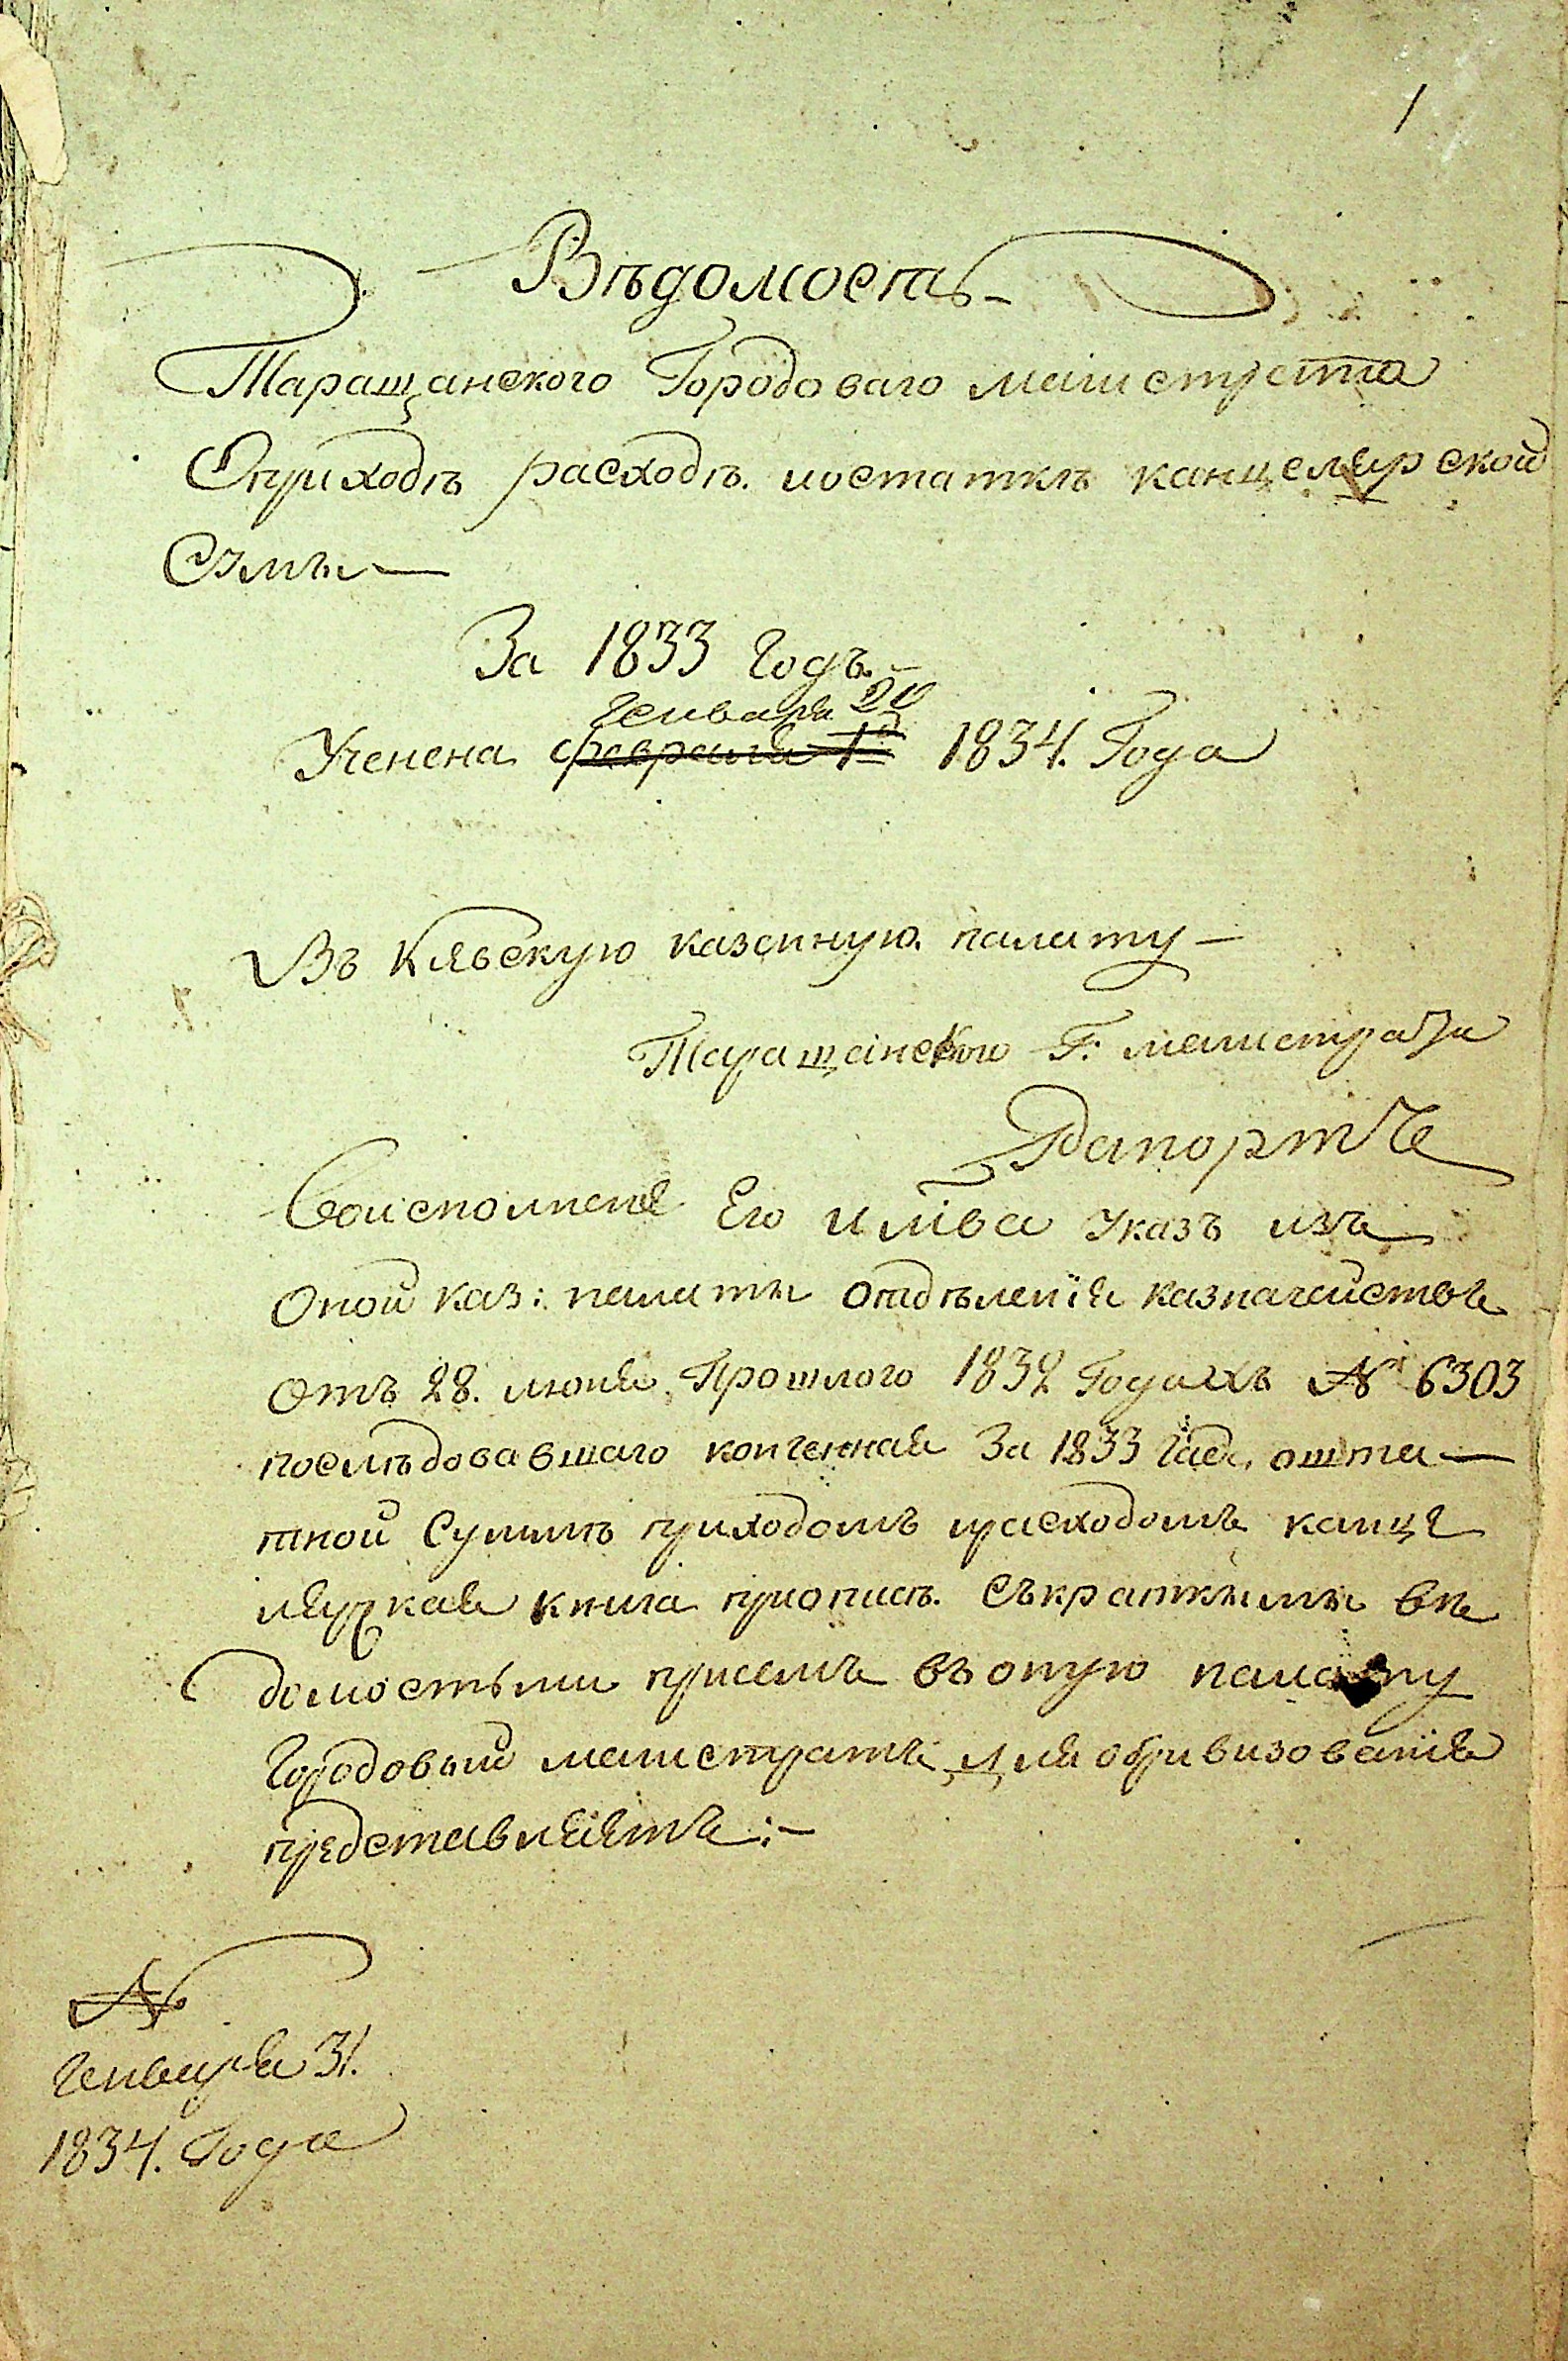 1
Вѣдомость
Таращанского Городоваго магистрата
Оприходѣ расходѣ. иостаткѣ канцелярской
Сумы
За 1833 годъ.
Генваря 20
Ученена февраля 1д 1834. Года
Въ Кіевскую казенную палату
Таращанского Г: магистрата
Рапортъ
Воисполненіе Его ИМ҃ва указъ изъ
Оной каз: палаты отдѣленія казначействъ
Отъ 28. июня Прошлого 1832 Года № 6303
послѣдовавшаго конченная За 1833 годъ ошта
тной Суммѣ приходомъ ирасходомъ канце
лярская книга приопись. Съкраткими вѣ
домостьми присемъ въоную палату
Городовый магистратъ для обривизованія
представляетъ:-
№
Генваря 31.
1834. Года